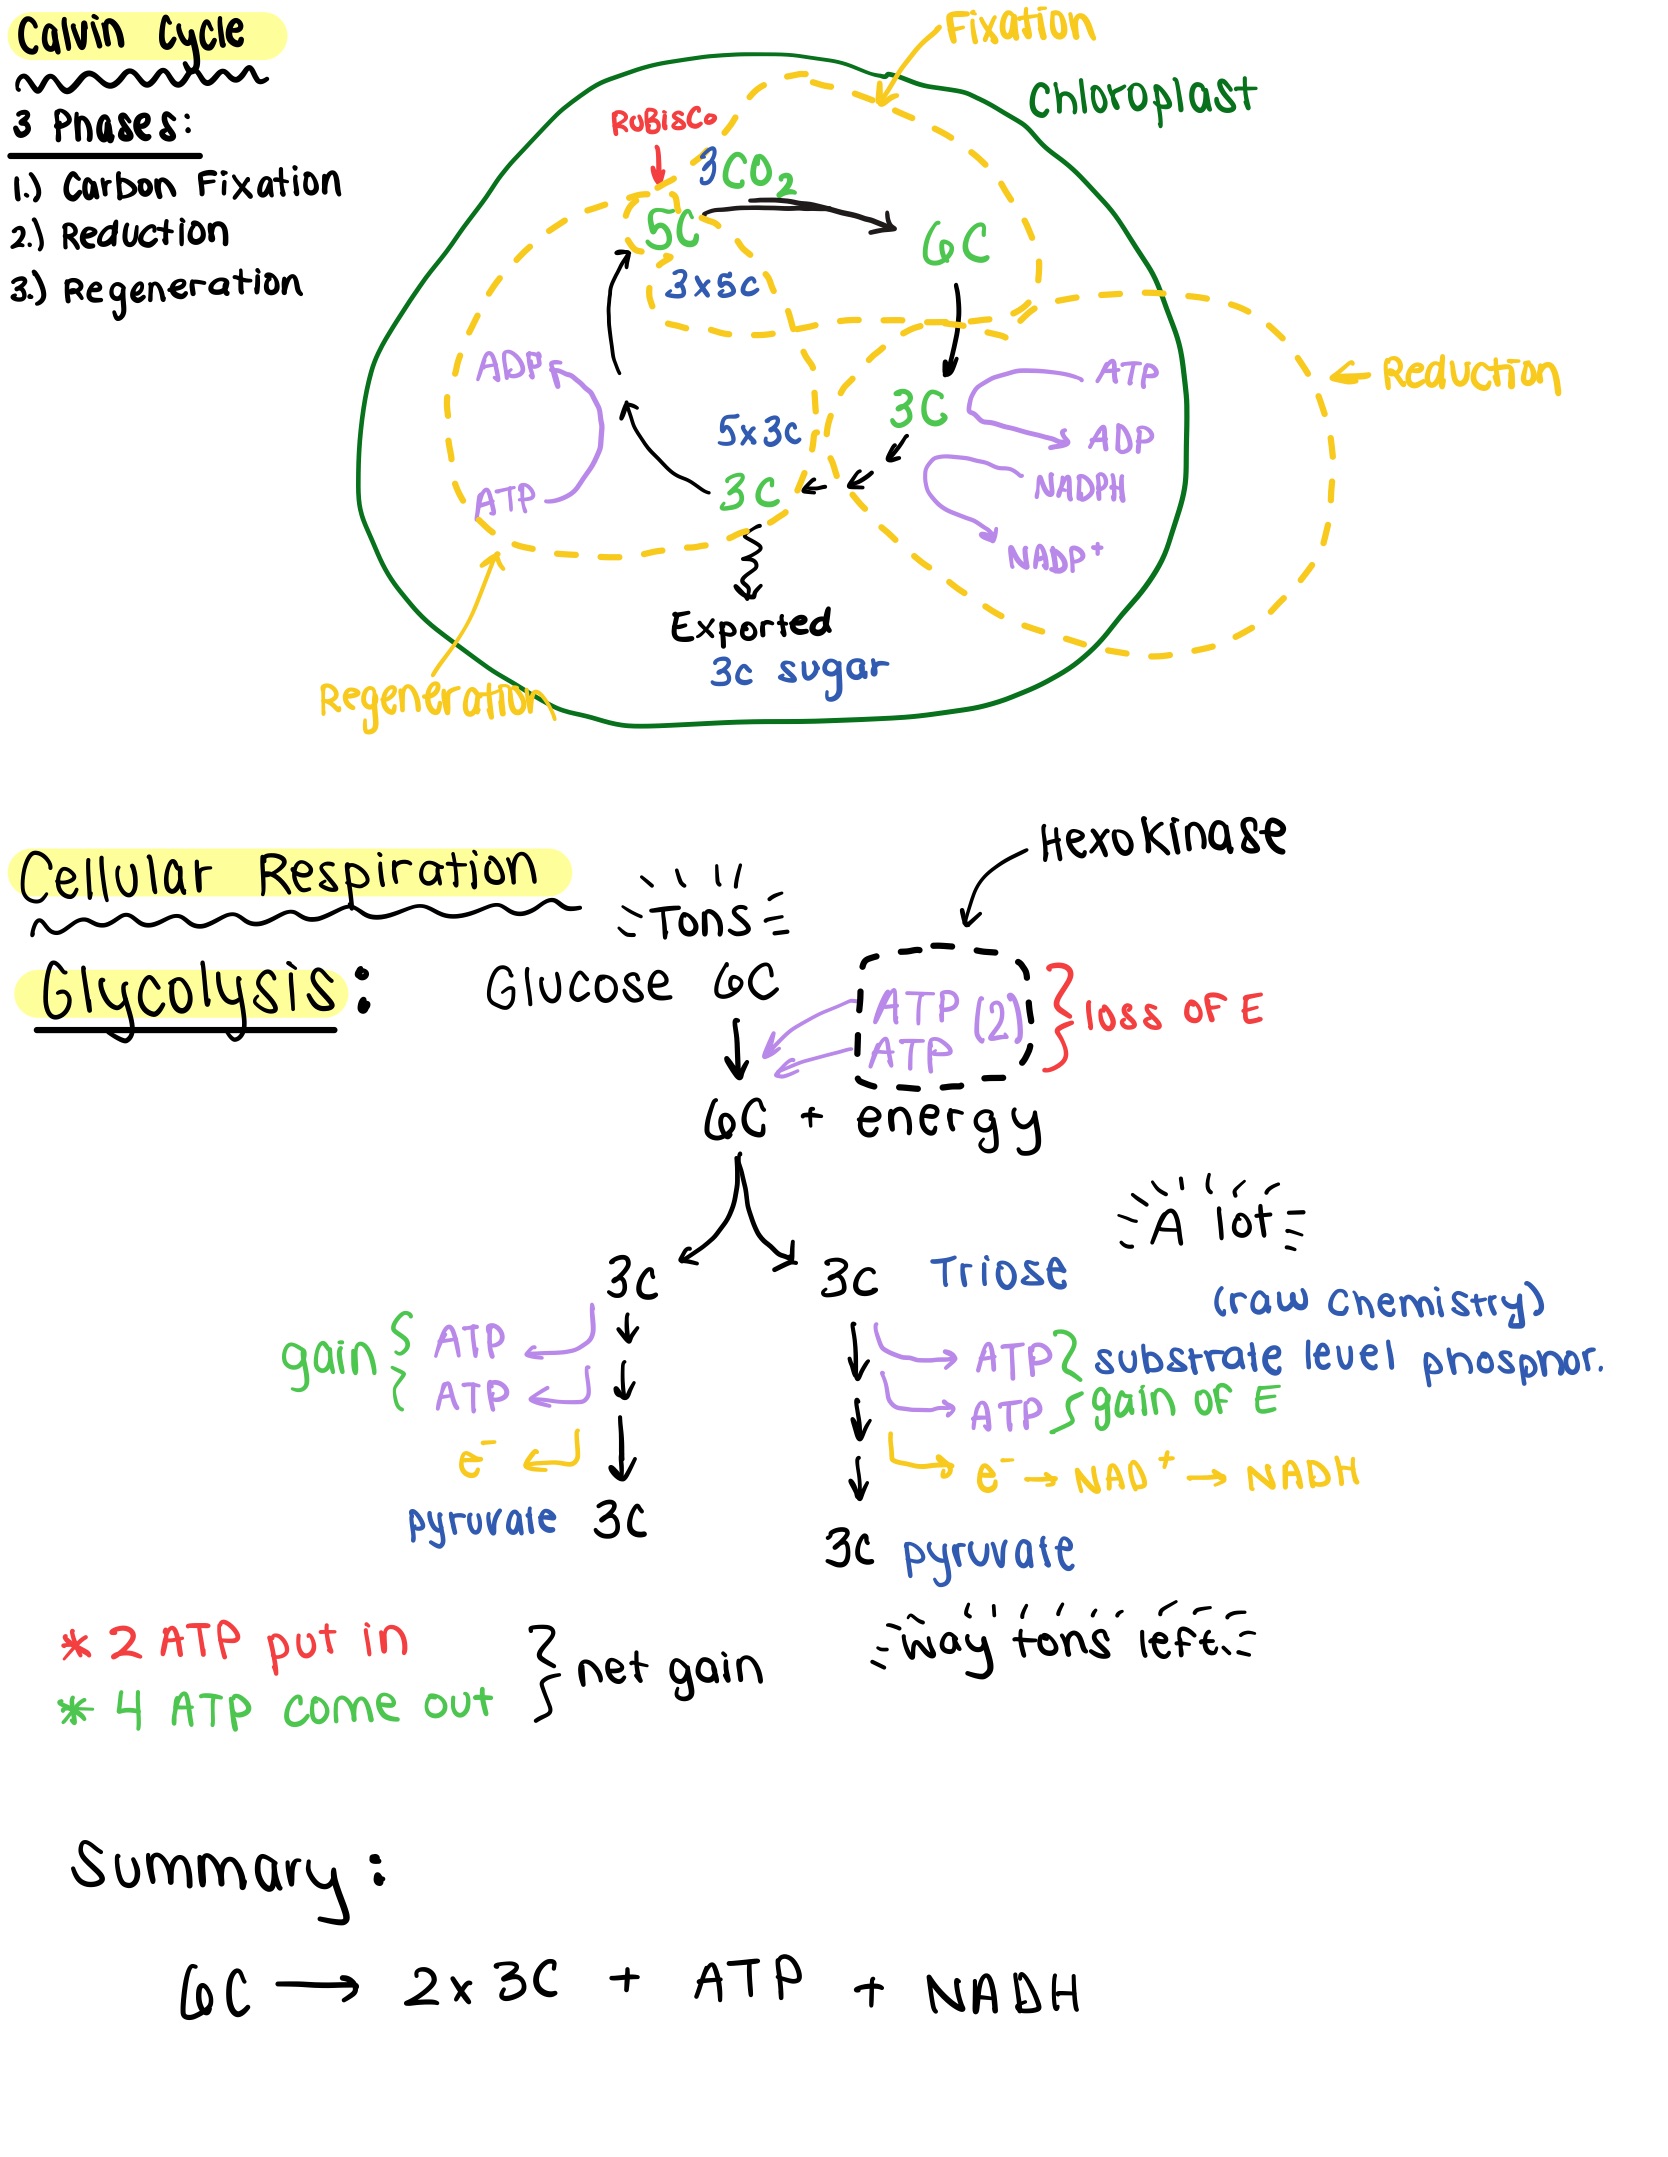 Calvin Cycle
3 Phases:
1.) Carbon Fixation
2.) Reduction
3.) Regeneration
Fixation
Chloroplast
RuBisCo
3CO2
5C
6C
3x5c
ADP
ATP
ADP
Reduction
3C
5x3c
3C
NADPH
ATP
NADP+
Exported
3c sugar
Regeneration
Cellular Respiration
Hexokinase
Tons
Glycolysis:
Glucose 6C
ATP (2)
ATP
loss of E
6C + energy
A lot
3c
3c Triose
(raw chemistry)
gain
ATP
ATP
ATP substrate level phosphor.
ATP gain of E
e-
e- → NAD+ → NADH
pyruvate 3C
3C pyruvate
* 2 ATP put in
* 4 ATP come out
net gain
way tons left.
Summary:
6C → 2x3C + ATP + NADH